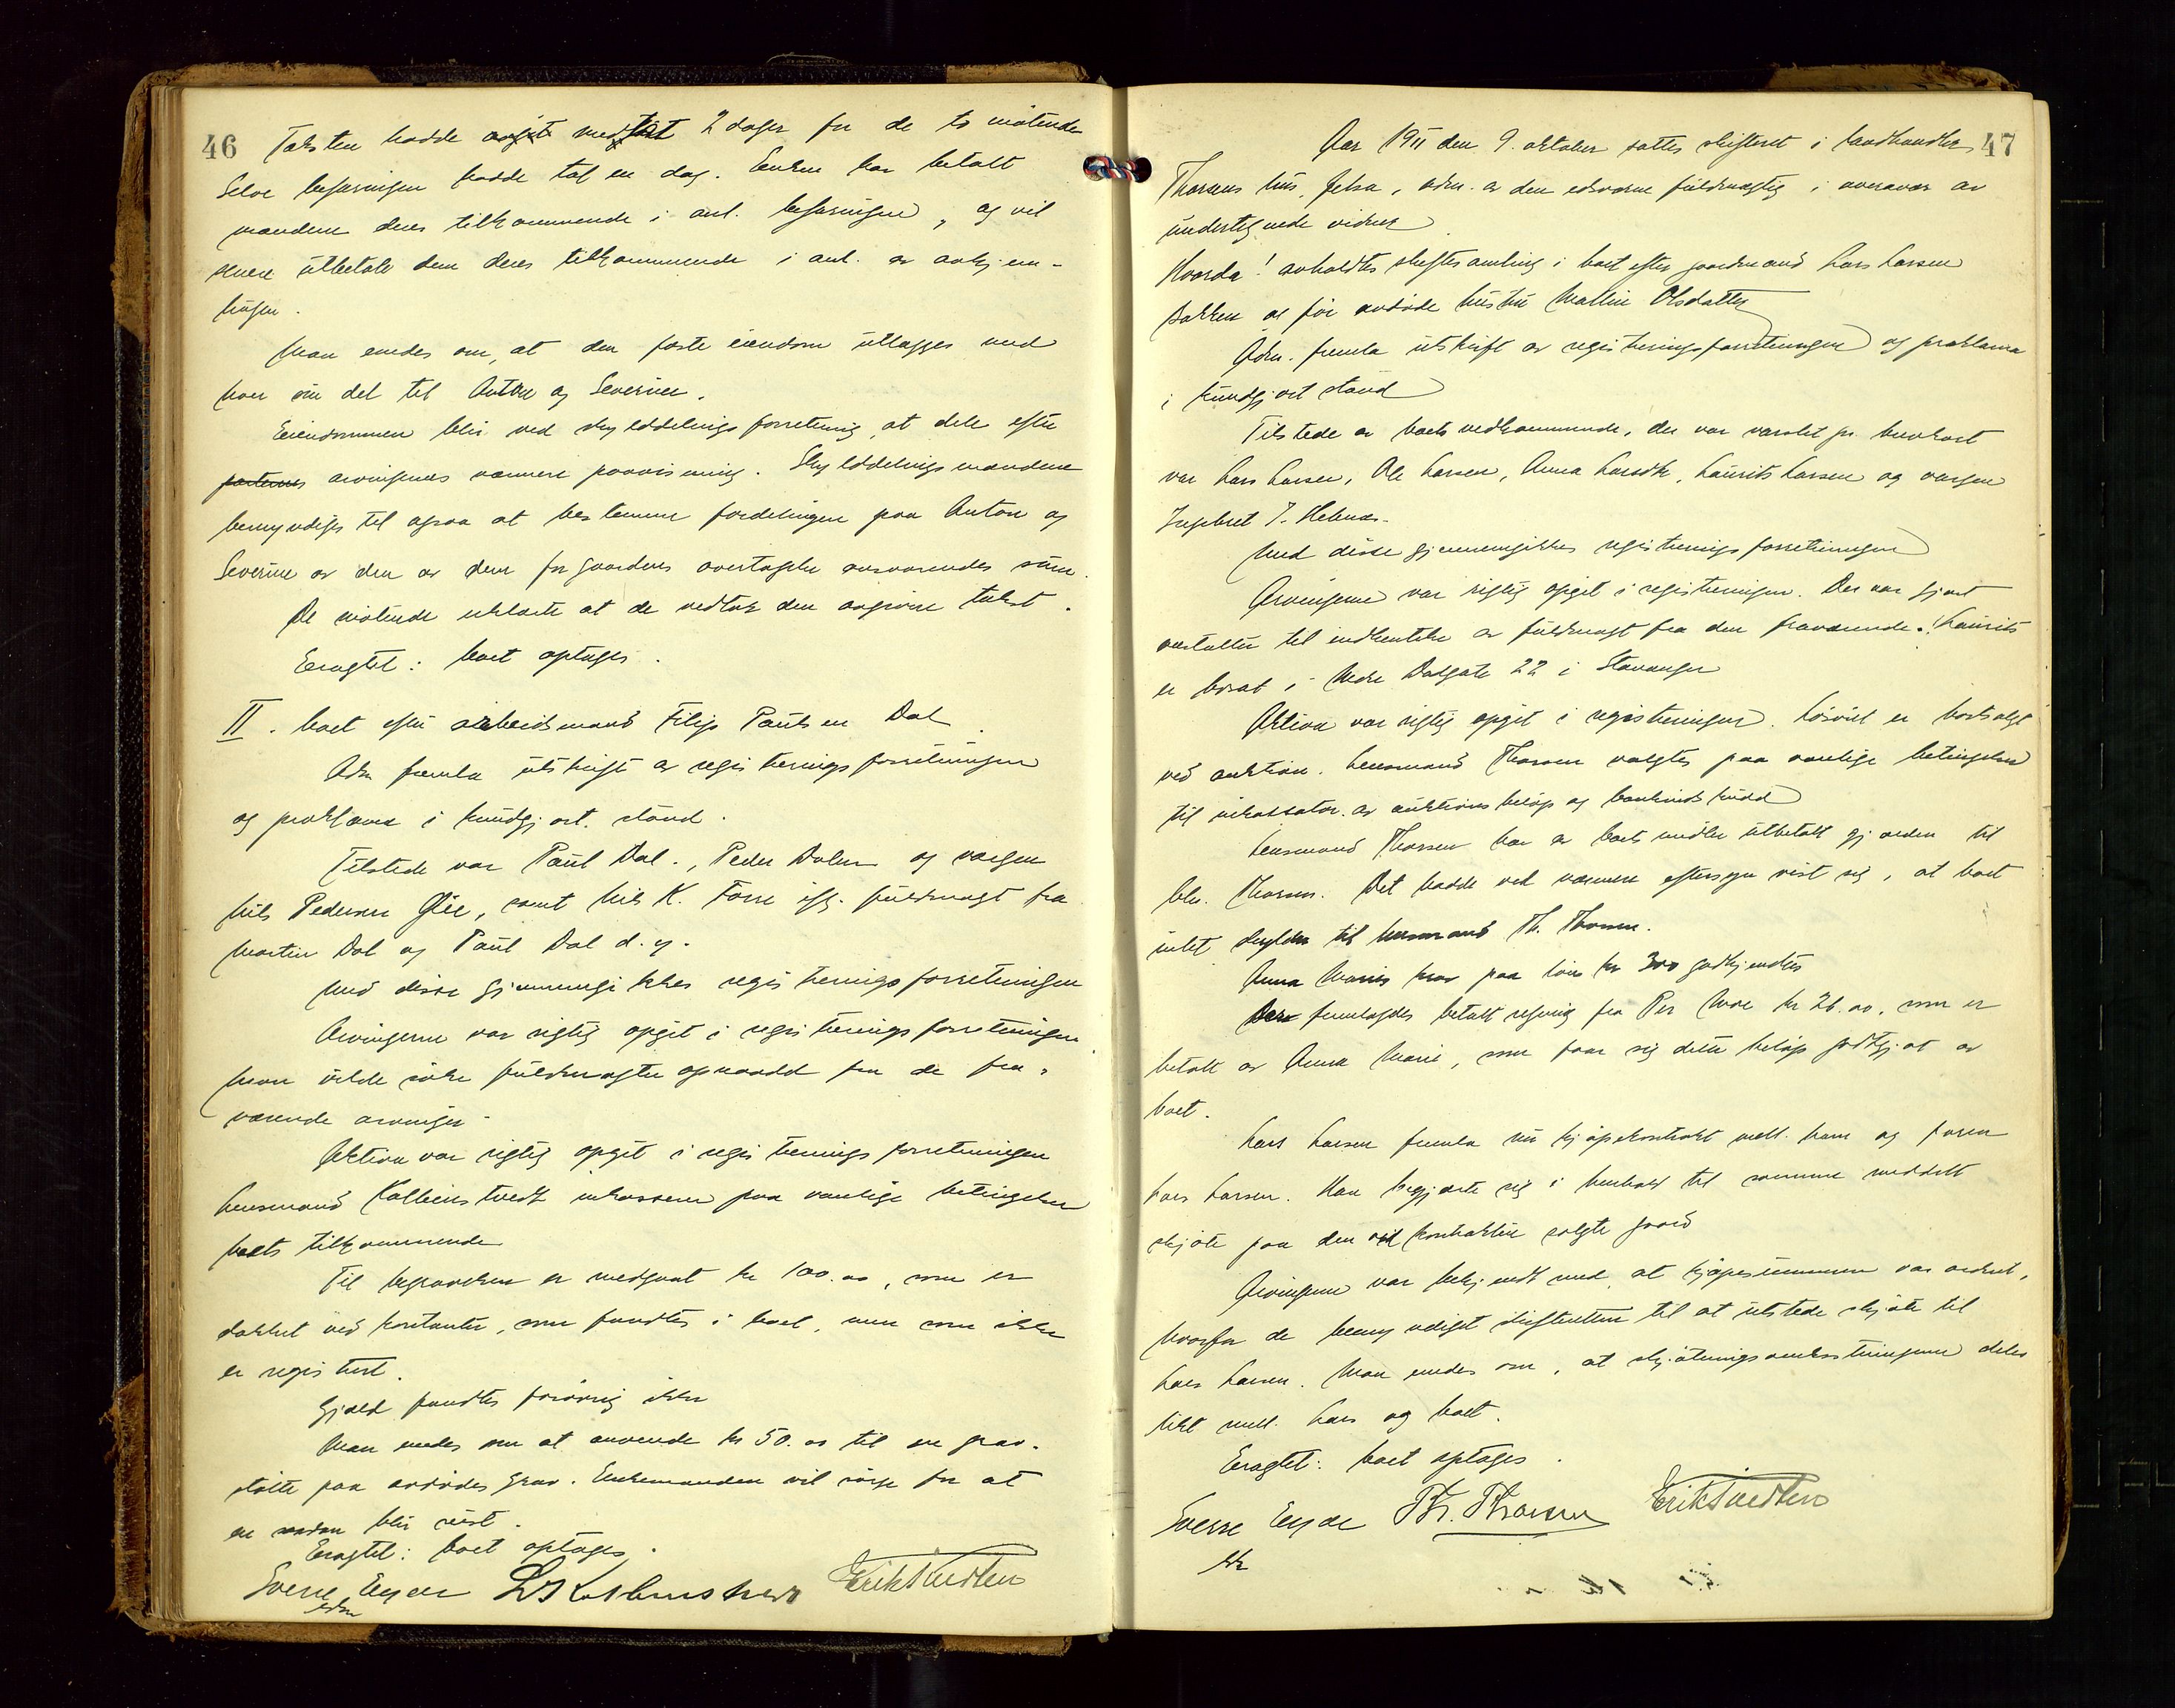 46
Taksten hadde medtat 2 dager for de to møtende
Selve befaringen hadde tat en dag. Enken har betalt
mændene deres tilkommende i anl. befaringen, og vil
senere utbetale dem deres tilkommende i anl. av avhjem-
lingen.
Man enedes om, at den faste eiendom utlægges med
hver sin del til Anton og Severine.
Eiendommen blir ved skylddelingsforretning at dele efter
parternes arvingenes nærmere paavisning. Skylddelingsmændene
bemyndiges til ogsaa at bestemme fordelingen paa Anton og
Severine av den av dem for gaardens overtagelse ansvarendes sum.
De møtende erklærte at de vedtok den avgivne takst.
Eragtet: boet optages.
II. boet efter arbeidsmand Filip Paulsen Dal
Adm. fremla utskrift av registreringsforretningen
og proklama i kundgjort stand.
Tilstede var Paul Dal, Peder Dalen og vergen
Nils Pedersen Gile, samt Nils K. Forre ifg. fuldmagt fra
Martin Dal og Paul Dal d. y.
Med disse gjennemgikkes registreringsforretningen
Arvingerne var rigtig opgit i registreringsforretningen.
Man vilde søke fuldmagter opnaadd fra de fra-
værende arvinger.
Aktiva var rigtig opgit i registreringsforretningen
Lensmand Kolbeinstvedt inkasserer paa vanlige betingelser
boets tilkommende
Til begravelsen er medgaat kr 100.00, som er
dækket ved kontanter, som fandtes i boet, men som ikke
er registrert.
Gjæld fandtes forøvrig ikke
Man enedes om at anvende kr 50.00 til en grav-
støtte paa avdødes grav. Enkemanden vil sørge for at
en saadan blir reist.
Eragtet: boet optages.
Sverre Eyde L Kolbenstvedt Erik Tvedten
edsv
47
Aar 1911 den 9. oktober sattes skifteret i landhandler
Thorsens hus, Jelsa, adm. av den edsvorne fuldmægtig i overvær av
undertegnede vidner
Hvorda! avholdtes skiftesamling i boet efter gaardmand Lars Larsen
Bakken og før avdøde hustru Malline Olsdatter
Adm. fremla utskrift av registreringsforretningen og proklama
i kundgjort stand
Tilstede av boets vedkommende, der var varslet pr. brevkort
var Lars Larsen, Ole Larsen, Anna Larsdtr, Laurits Larsen og vergen
Ingebret T. Helnæs.
Med disse gjennemgikkes registreringsforretningen
Arvingerne var rigtig opgit i registreringen. Der var gjort
anstalter til indhentelse av fuldmagt fra den fraværende. Laurits
er bosat i Nedre Dalgate 22 i Stavanger
Aktiva var rigtig opgit i registreringen. Løsøret er bortsolgt
ved auktion. Lensmand Thorsen valgtes paa vanlige betingelser
til inkassator av auktionsbeløp og bankindskudd
Lensmand Thorsen har av boets midler utbetalt gjælden til
Thorsen. Det hadde ved nærmere eftersyn vist sig, at boet
intet skylder til lensmand Th. Thorsen.
Anna Maries krav paa løn kr 300 godkjendtes
Der fremlagdes betalt regning fra Per Moe kr 26.00, som er
betalt av Anna Marie, som faar sig dette beløp godtgjort av
boet.
Lars Larsen fremla nu kjøpekontrakt mell. ham og faren
Lars Larsen. Han begjærte sig i henhold til samme meddelt
skjøte paa den ved kontrakten solgte gaard
Arvingerne var bekjendt med at kjøpesummen var ordnet,
hvorfor de bemyndiget skifteretten til at utstede skjøte til
Lars Larsen. Man enedes om, at skjøtningsomkostningerne deles
likt mell. Lars og boet.
Eragtet: boet optages.
Sverre Eyde Th. Thorsen Erik Tvedten